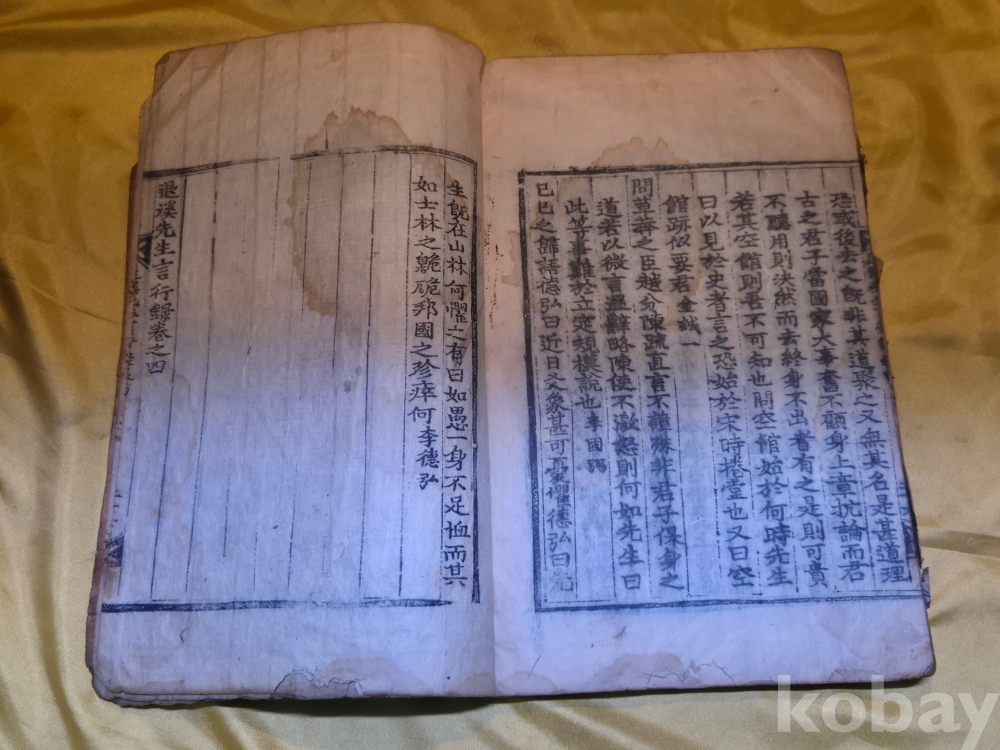 恐或後去之旣非其道聚之又無其名是甚道理
古之君子當國家大事奮不顧身上章抗論而君
不聽用則決然而去終身不出者有之是則可貴
若其空館則吾不可知也問空館始於何時先生
曰以見於史者言之恐始於宋時捲堂也又曰空
館跡似要君 金誠一
問草莽之臣越分陳疏直言不諱殊非君子保身之
道若以微言溫辭略陳使不激怒則何如先生曰
此等事難於立定規模說也 李國弼
己巳之歸語德弘曰近日爻象甚可憂懼德弘曰先
生旣在山林何懼之有曰如愚一身不足恤而其
如士林之臲卼邦國之殄瘁何 李德弘
退溪先生言行錄卷之四
kobay